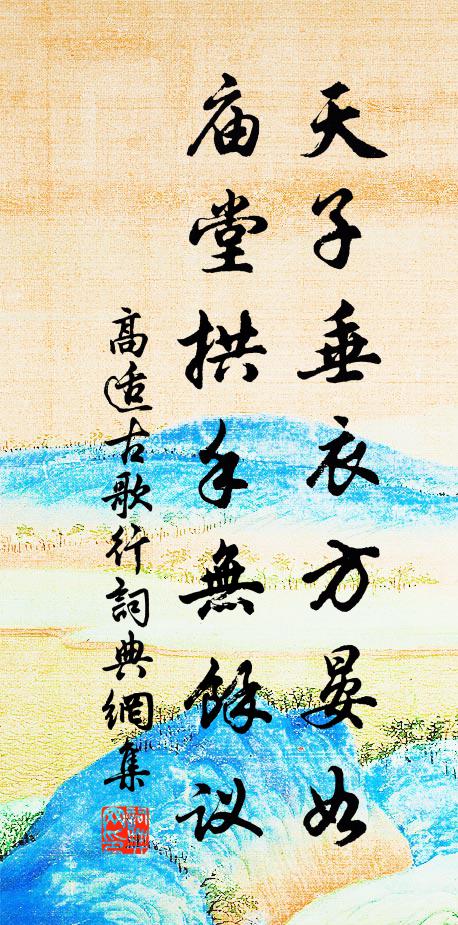 天子垂衣方晏如
庙堂拱手無餘议
高适古歌行詞典網集